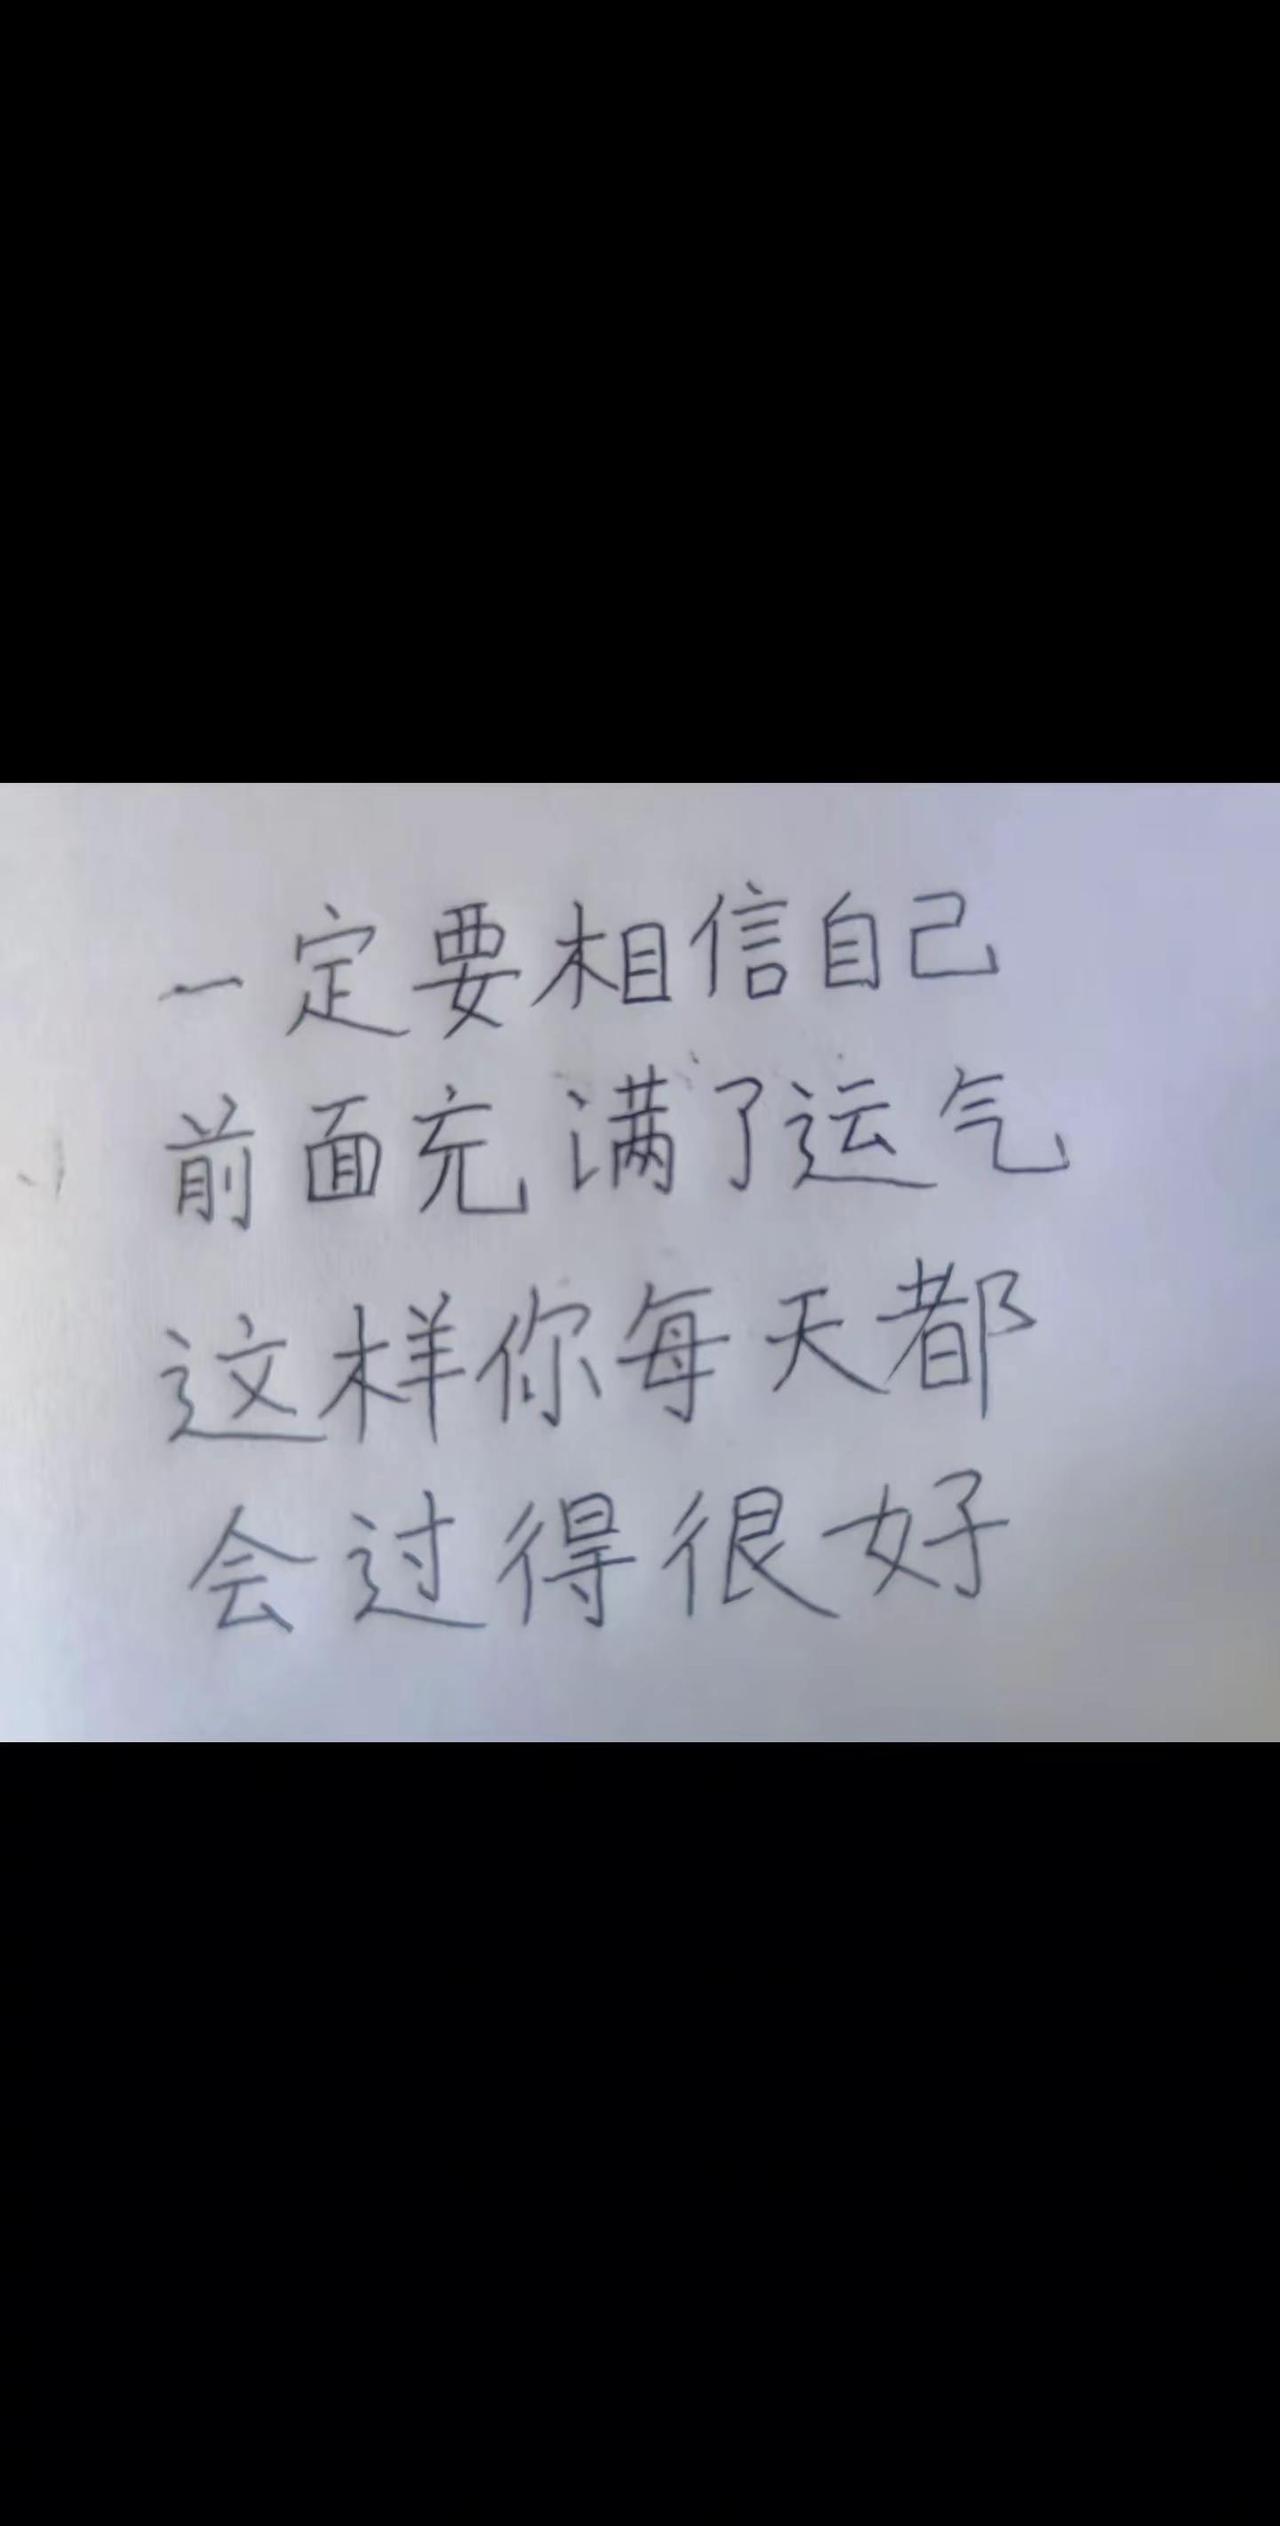 一定要相信自己
前面充满了运气
这样你每天都
会过得很好